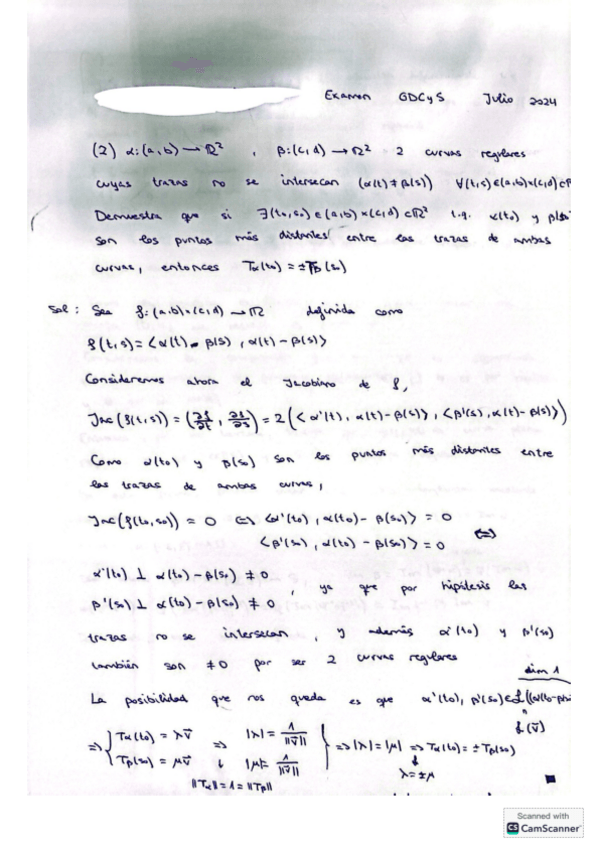 Examen GDCyS Julio 2024
(2) α:(a,b)→ℝ² , β:(c,d)→ℝ² 2 curvas regulares
cuyas trazas no se intersecan (α(t)≠β(s)) ∀(t,s)∈(a,b)×(c,d)⊂ℝ
Demuestra que si ∃(t₀,s₀)∈(a,b)×(c,d)⊂ℝ² t.q. α(t₀) y β(s₀
son los puntos más distantes entre las trazas de ambas
curvas, entonces Tα(t₀)=±Tβ(s₀)
Sol: Sea f:(a,b)×(c,d)→ℝ definida como
f(t,s)=⟨α(t)-β(s), α(t)-β(s)⟩
Consideremos ahora el Jacobiano de f,
Jac(f(t,s))=(∂f/∂t, ∂f/∂s)=2(⟨α'(t), α(t)-β(s)⟩, ⟨β'(s), α(t)-β(s)⟩)
Como α(t₀) y β(s₀) son los puntos más distantes entre
las trazas de ambas curvas,
Jac(f(t₀,s₀))=0 ⇔ ⟨α'(t₀), α(t₀)-β(s₀)⟩=0
⟨β'(s₀), α(t₀)-β(s₀)⟩=0 ⇔
α'(t₀) ⊥ α(t₀)-β(s₀) ≠ 0
β'(s₀) ⊥ α(t₀)-β(s₀) ≠ 0 , ya que por hipótesis las
trazas no se intersecan, y además α'(t₀) y β'(s₀)
también son ≠0 por ser 2 curvas regulares
dim 1
La posibilidad que nos queda es que α'(t₀), β'(s₀)∈L((α(t₀-β(s
L(v̄)
⇒ { Tα(t₀)=λv̄ ⇒ |λ|=1/||v̄||
Tβ(s₀)=μv̄ |μ|=1/||v̄|| } ⇒ |λ|=|μ| ⇒ Tα(t₀)=±Tβ(s₀)
||Tα||=1=||Tβ|| λ=±μ
Scanned with
CS CamScanner